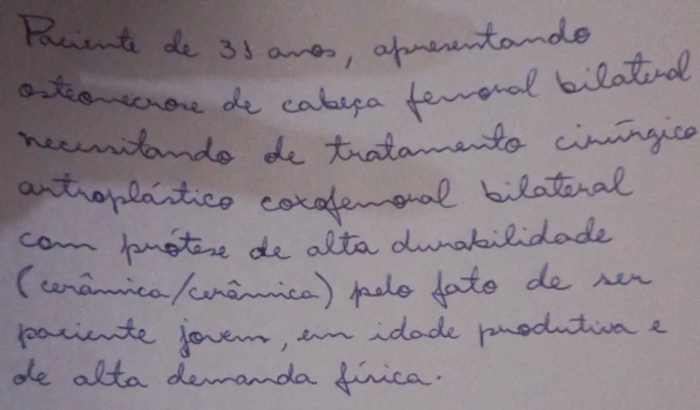 Paciente de anos, apresentando
osteonecrose de cabeça femoral bilateral
necessitando de tratamento cirúrgico
artroplástico coxofemoral bilateral
com prótese de alta durabilidade
(cerâmica/cerâmica) pelo fato de ser
paciente jovem, em idade produtiva e
de alta demanda física.